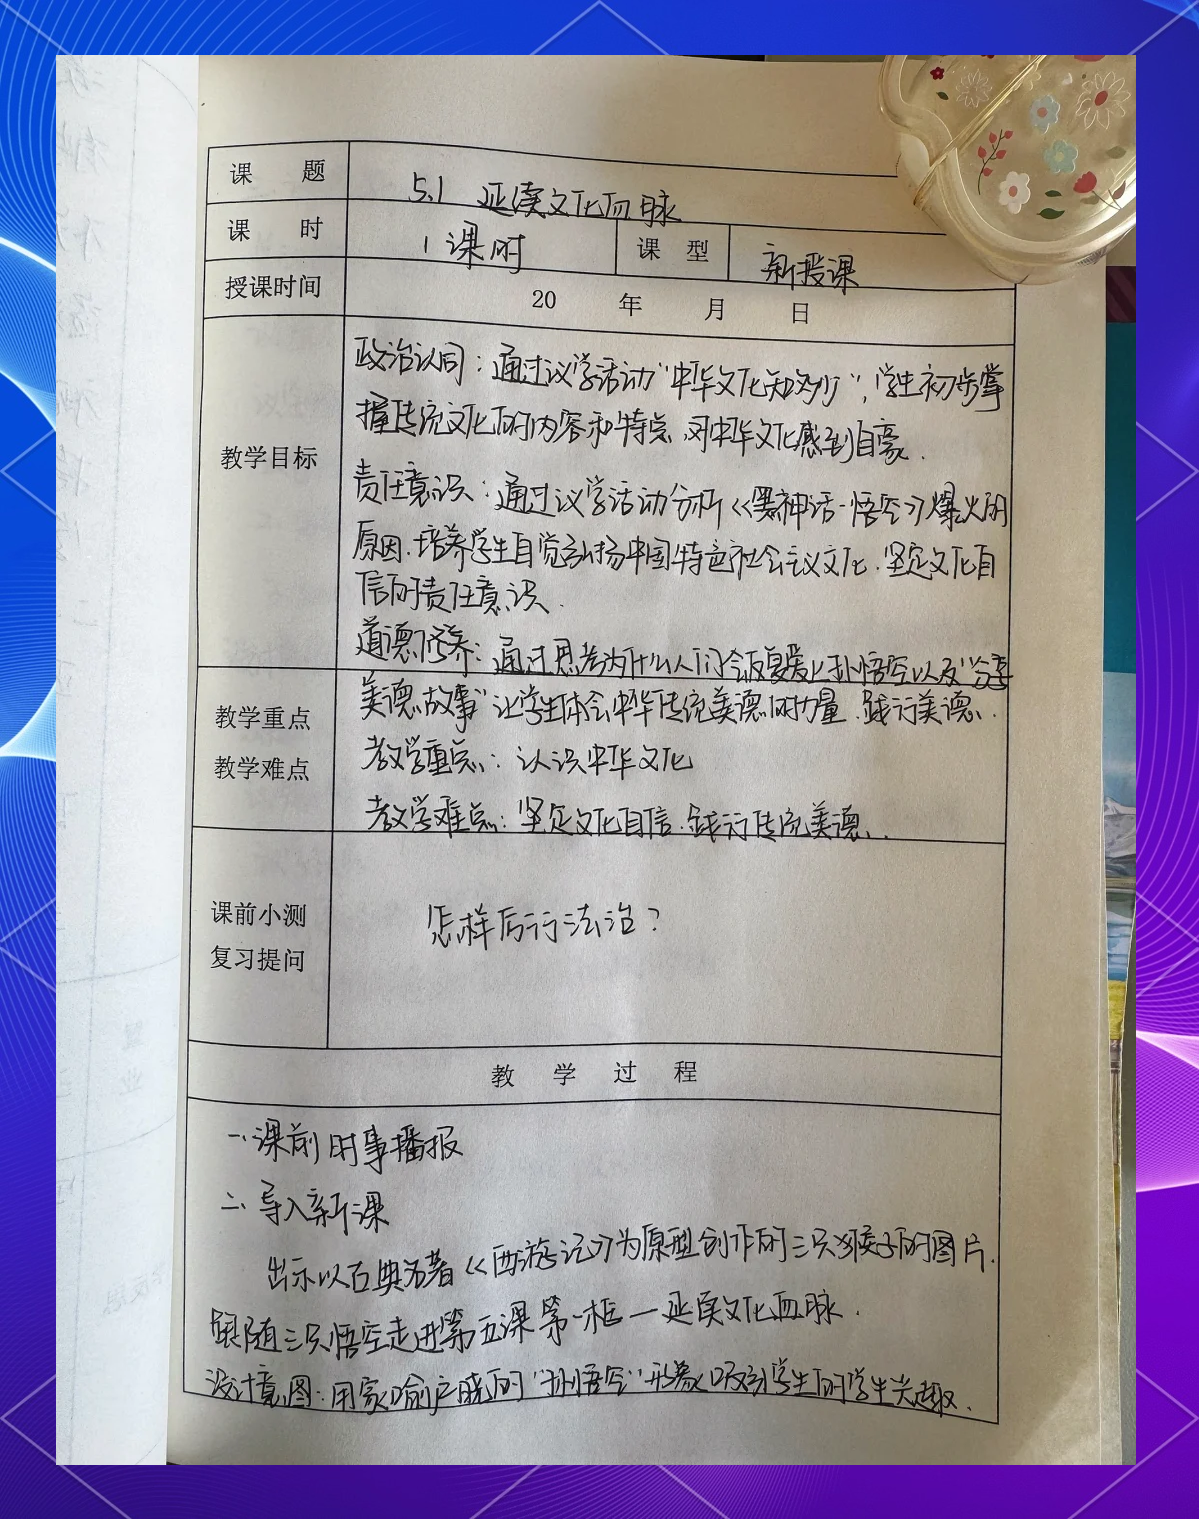 课 题 5.1 延续文化血脉
课 时 1课时 课 型 新授课
授课时间 20 年 月 日
教学目标
政治认同：通过议学活动"中华文化知多少"，学生初步掌
握传统文化的内容和特点，对中华文化感到自豪.
责任意识：通过议学活动分析《黑神话·悟空》爆火的
原因，培养学生自觉弘扬中国特色社会主义文化，坚定文化自
信的责任意识.
道德修养：通过思考为什么人们会反复爱上孙悟空以及"分享
美德故事"让学生体会中华传统美德的力量，践行美德.
教学重点
教学难点
教学重点：认识中华文化
教学难点：坚定文化自信，践行传统美德.
课前小测
复习提问
怎样厉行法治？
教 学 过 程
一、课前时事播报
二、导入新课
出示以古典名著《西游记》为原型创作的三只猴子的图片.
跟随三只悟空走进第五课第一框—延续文化血脉.
设计意图：用家喻户晓的"孙悟空"形象吸引学生的学生兴趣.